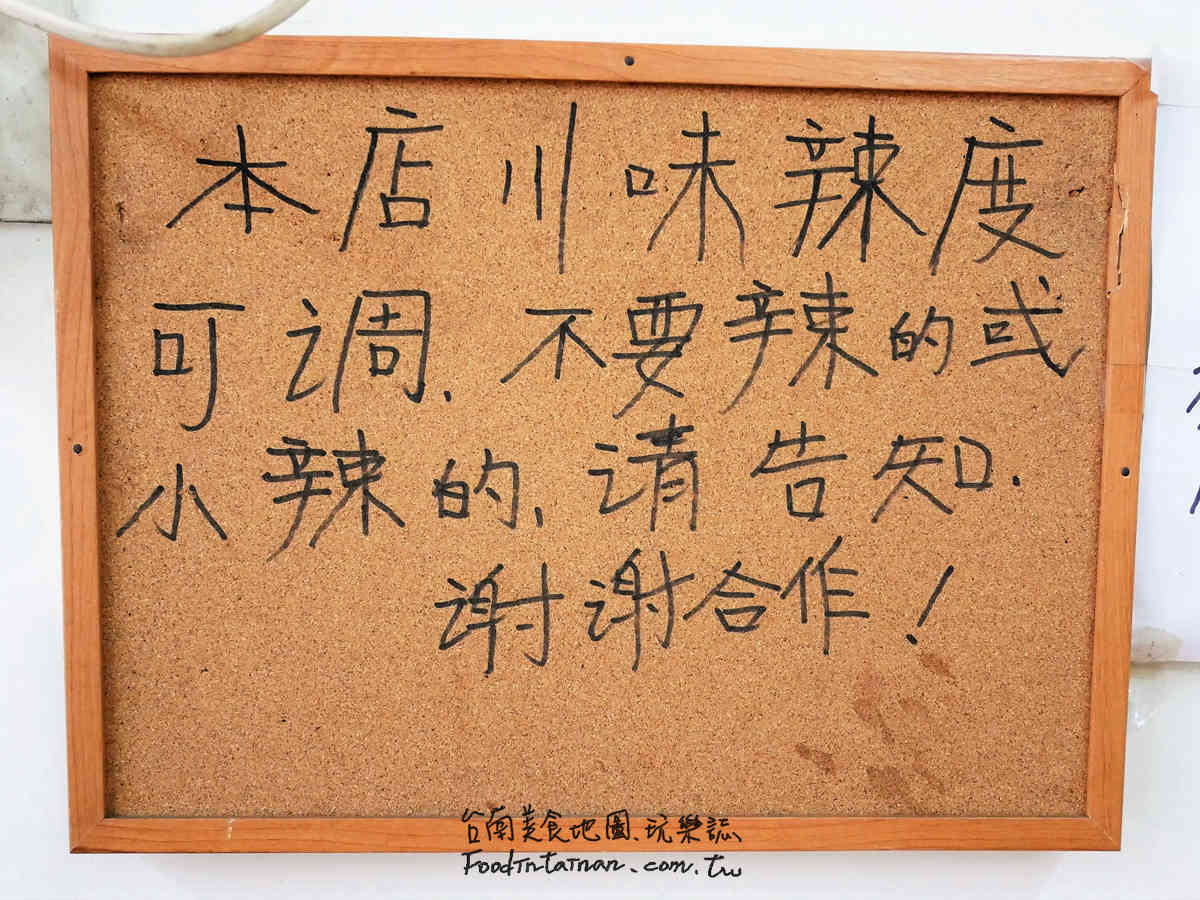 本店川味辣度
可调.不要辣的或
小辣的,请告知.
谢谢合作!
台南美食地圖、玩樂誌
FoodInTainan.com.tw